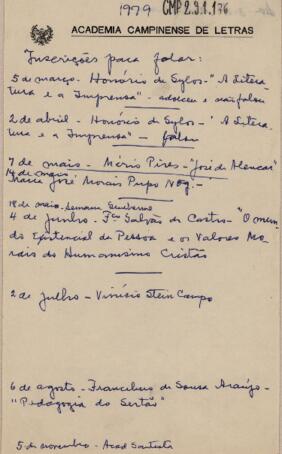 1979 CMP 2.9.1.176
ACADEMIA CAMPINENSE DE LETRAS
Inscrições para falar:
5 de março - Honório de Sylos - "A Litera-
tura e a Imprensa" - adoeceu e não falou
2 de abril - Honório de Sylos - "A Litera-
tura e a Imprensa" - falou
7 de maio - Mério Pires - "José de Alencar"
14 de maio
Maria José Morais Pupo Nog. -
18 de maio - Semana
4 de junho - Fco Galvão de Castro - "O mun-
do Existencial da Pessoa e os Valores Mo-
rais do Humanismo Cristão
2 de julho - Vinício Stein Campo
6 de agosto - Francelino de Sousa Araújo -
"Pedagogia do Sertão"
5 de novembro - Acad